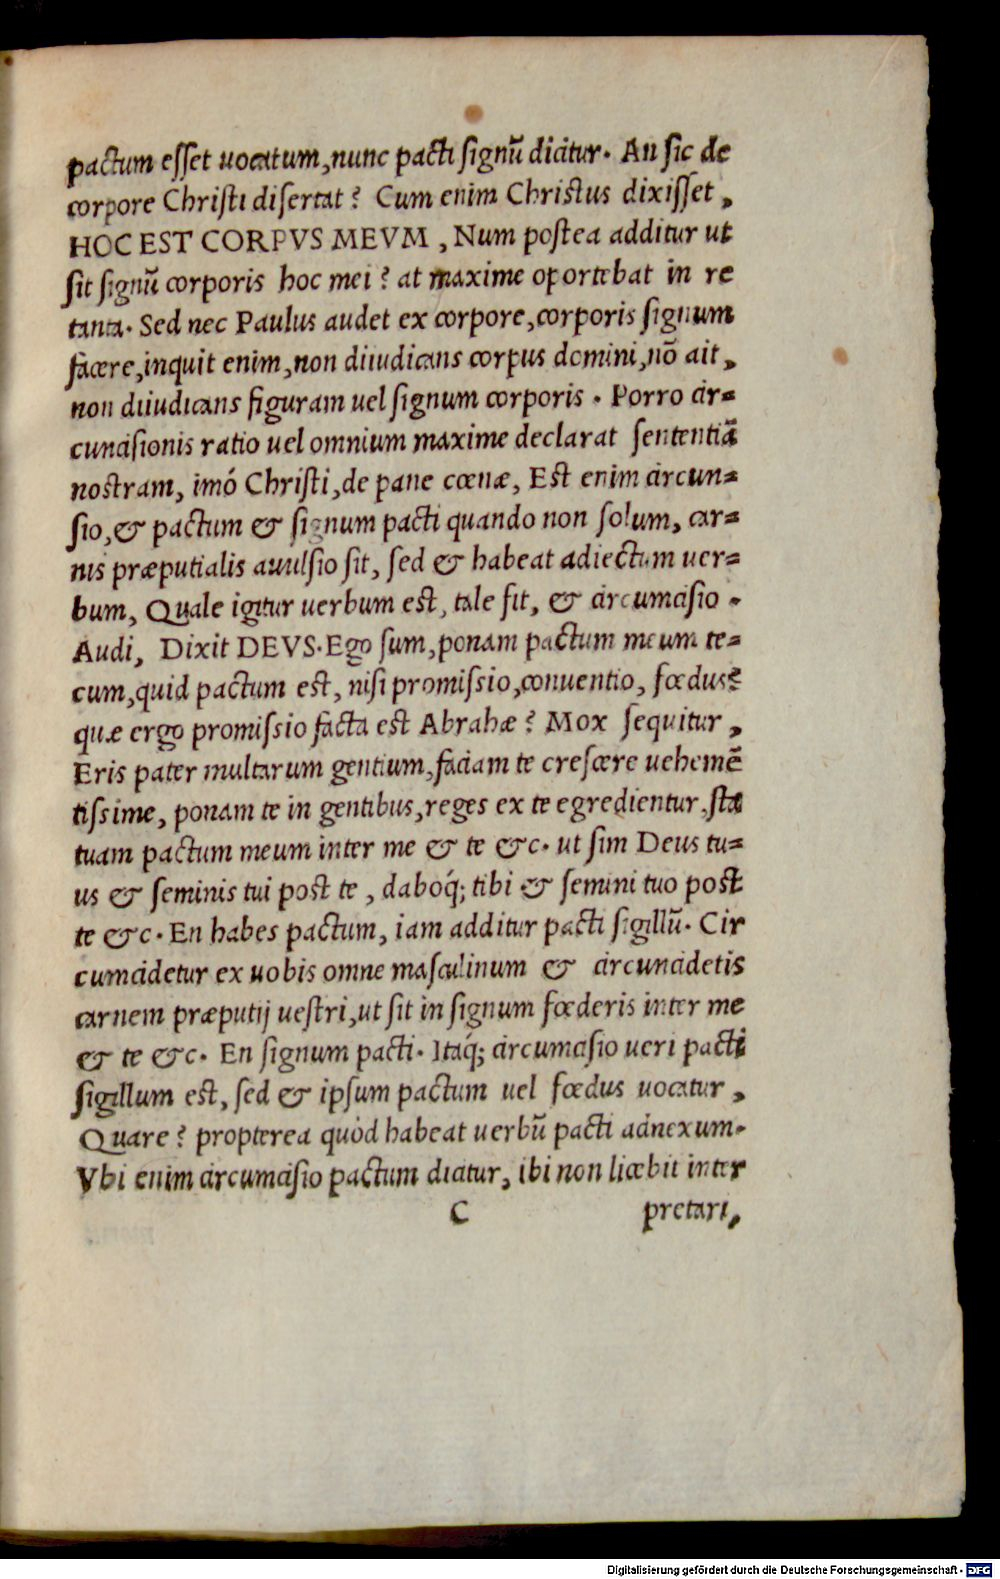 pactum esſet uocatum, nunc pacti ſignũ dicitur. An ſic de
corpore Chriſti diſertat? Cum enim Christus dixiſſet,
HOC EST CORPVS MEVM, Num poſtea additur ut
ſit ſignũ corporis hoc mei? at maxime oportebat in re
tanta. Sed nec Paulus audet ex corpore, corporis ſignum
facere, inquit enim, non diiudicans corpus domini, nõ ait,
non diiudicans figuram uel ſignum corporis. Porro cir=
cunciſionis ratio uel omnium maxime declarat ſententiã
nostram, imó Chriſti, de pane cœnæ, Est enim circun=
ſio, & pactum & ſignum pacti quando non ſolum, car=
nis præputialis auulſio ſit, ſed & habeat adiectum uer=
bum, Quale igitur uerbum est, tale fit, & circumciſio.
Audi, Dixit DEVS. Ego ſum, ponam pactum meum te=
cum, quid pactum est, niſi promiſsio, conuentio, fœdus?
quæ ergo promiſsio facta est Abrahæ? Mox ſequitur,
Eris pater multarum gentium, faciam te creſcere uehemẽ
tiſsime, ponam te in gentibus, reges ex te egredientur, sta
tuam pactum meum inter me & te &c. ut ſim Deus tu=
us & ſeminis tui post te, daboq́; tibi & ſemini tuo post
te &c. En habes pactum, iam additur pacti ſigillũ. Cir
cumcidetur ex uobis omne maſculinum & circuncidetis
carnem præputij uestri, ut ſit in ſignum fœderis inter me
& te &c. En ſignum pacti. Itaq́; circumciſio ueri pacti
ſigillum est, ſed & ipſum pactum uel fœdus uocatur,
Quare? propterea quòd habeat uerbũ pacti adnexum.
Vbi enim circumciſio pactum dicitur, ibi non licebit inter
C pretari,
Digitalisierung gefördert durch die Deutsche Forschungsgemeinschaft - DFG